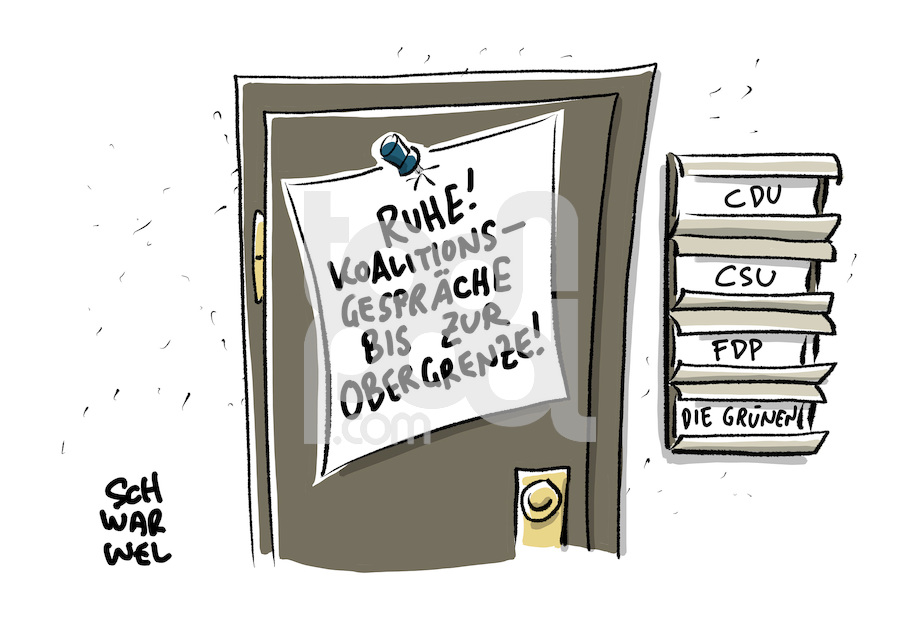 RUHE!
KOALITIONS-
GESPRÄCHE
BIS ZUR
OBERGRENZE!
CDU
CSU
FDP
DIE GRÜNEN
SCH
WAR
WEL
toonpool
.com